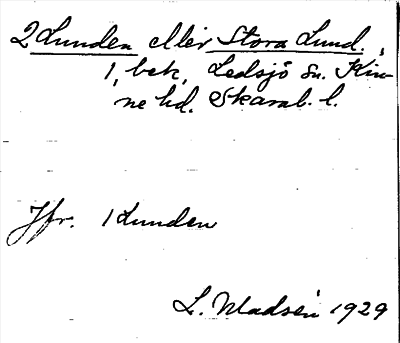 2 Lunden eller Stora Lund,
1, bek, Ledsjö sn. Kin-
ne hd. Skarab. l.
Jfr. 1 Lunden
L. Madsén 1929